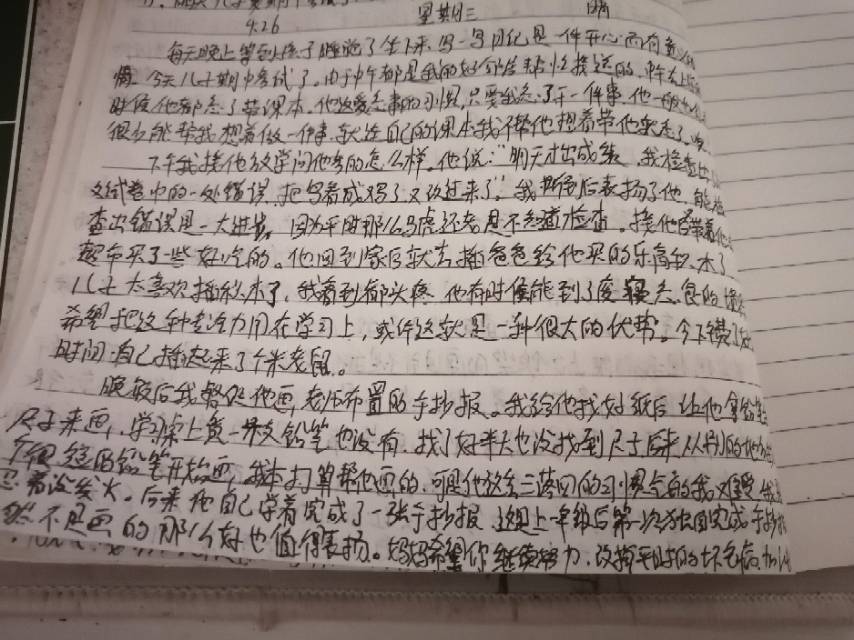 4.26 星期三 晴
每天晚上等到孩子睡觉了坐下来写一写日记是一件开心而有意义的
情 今天儿子期中考试了。由于中午都是我的好朋友帮忙接送的,昨天上
时候他都忘了带课本。他这爱忘事的习惯,只要我忘了干一件事,他一般
很少能帮我想着做一件事,就连自己的课本我不帮他想着带他就忘了。
下午我接他放学问他考的怎么样。他说:“明天才出成绩,我检查出
文试卷中的一处错误,把写着成 了又改过来了”。我听后表扬了他,能检
查出错误是一大进步。因为平时那么马虎还老是不知道检查。接他后带着他
超市买了一些好吃的。他回到家后就去插爸爸给他买的乐高积木了
儿子太喜欢插积木了,我看到都头疼 他有时候能到了废寝忘食的
希望把这种专注力用在学习上,或许这就是一种很大的优势。今下
时间自己插起来了个米老鼠。
晚饭后我督促他画老师布置的手抄报。我给他找好纸后 让他拿铅笔
尺子来画,学习桌上竟一支铅笔也没有,找了好半天也没找到尺子后来从别的地方
很短的铅笔开始画,我本打算帮他画的,可是他放东三落四的习惯气的我
忍着没发火。后来他自己学着完成了一张手抄报 这是上一年级后第一次独自完成手抄
然不是画的那么好也值得表扬。妈妈希望你继续努力,改掉平时的坏毛病,加